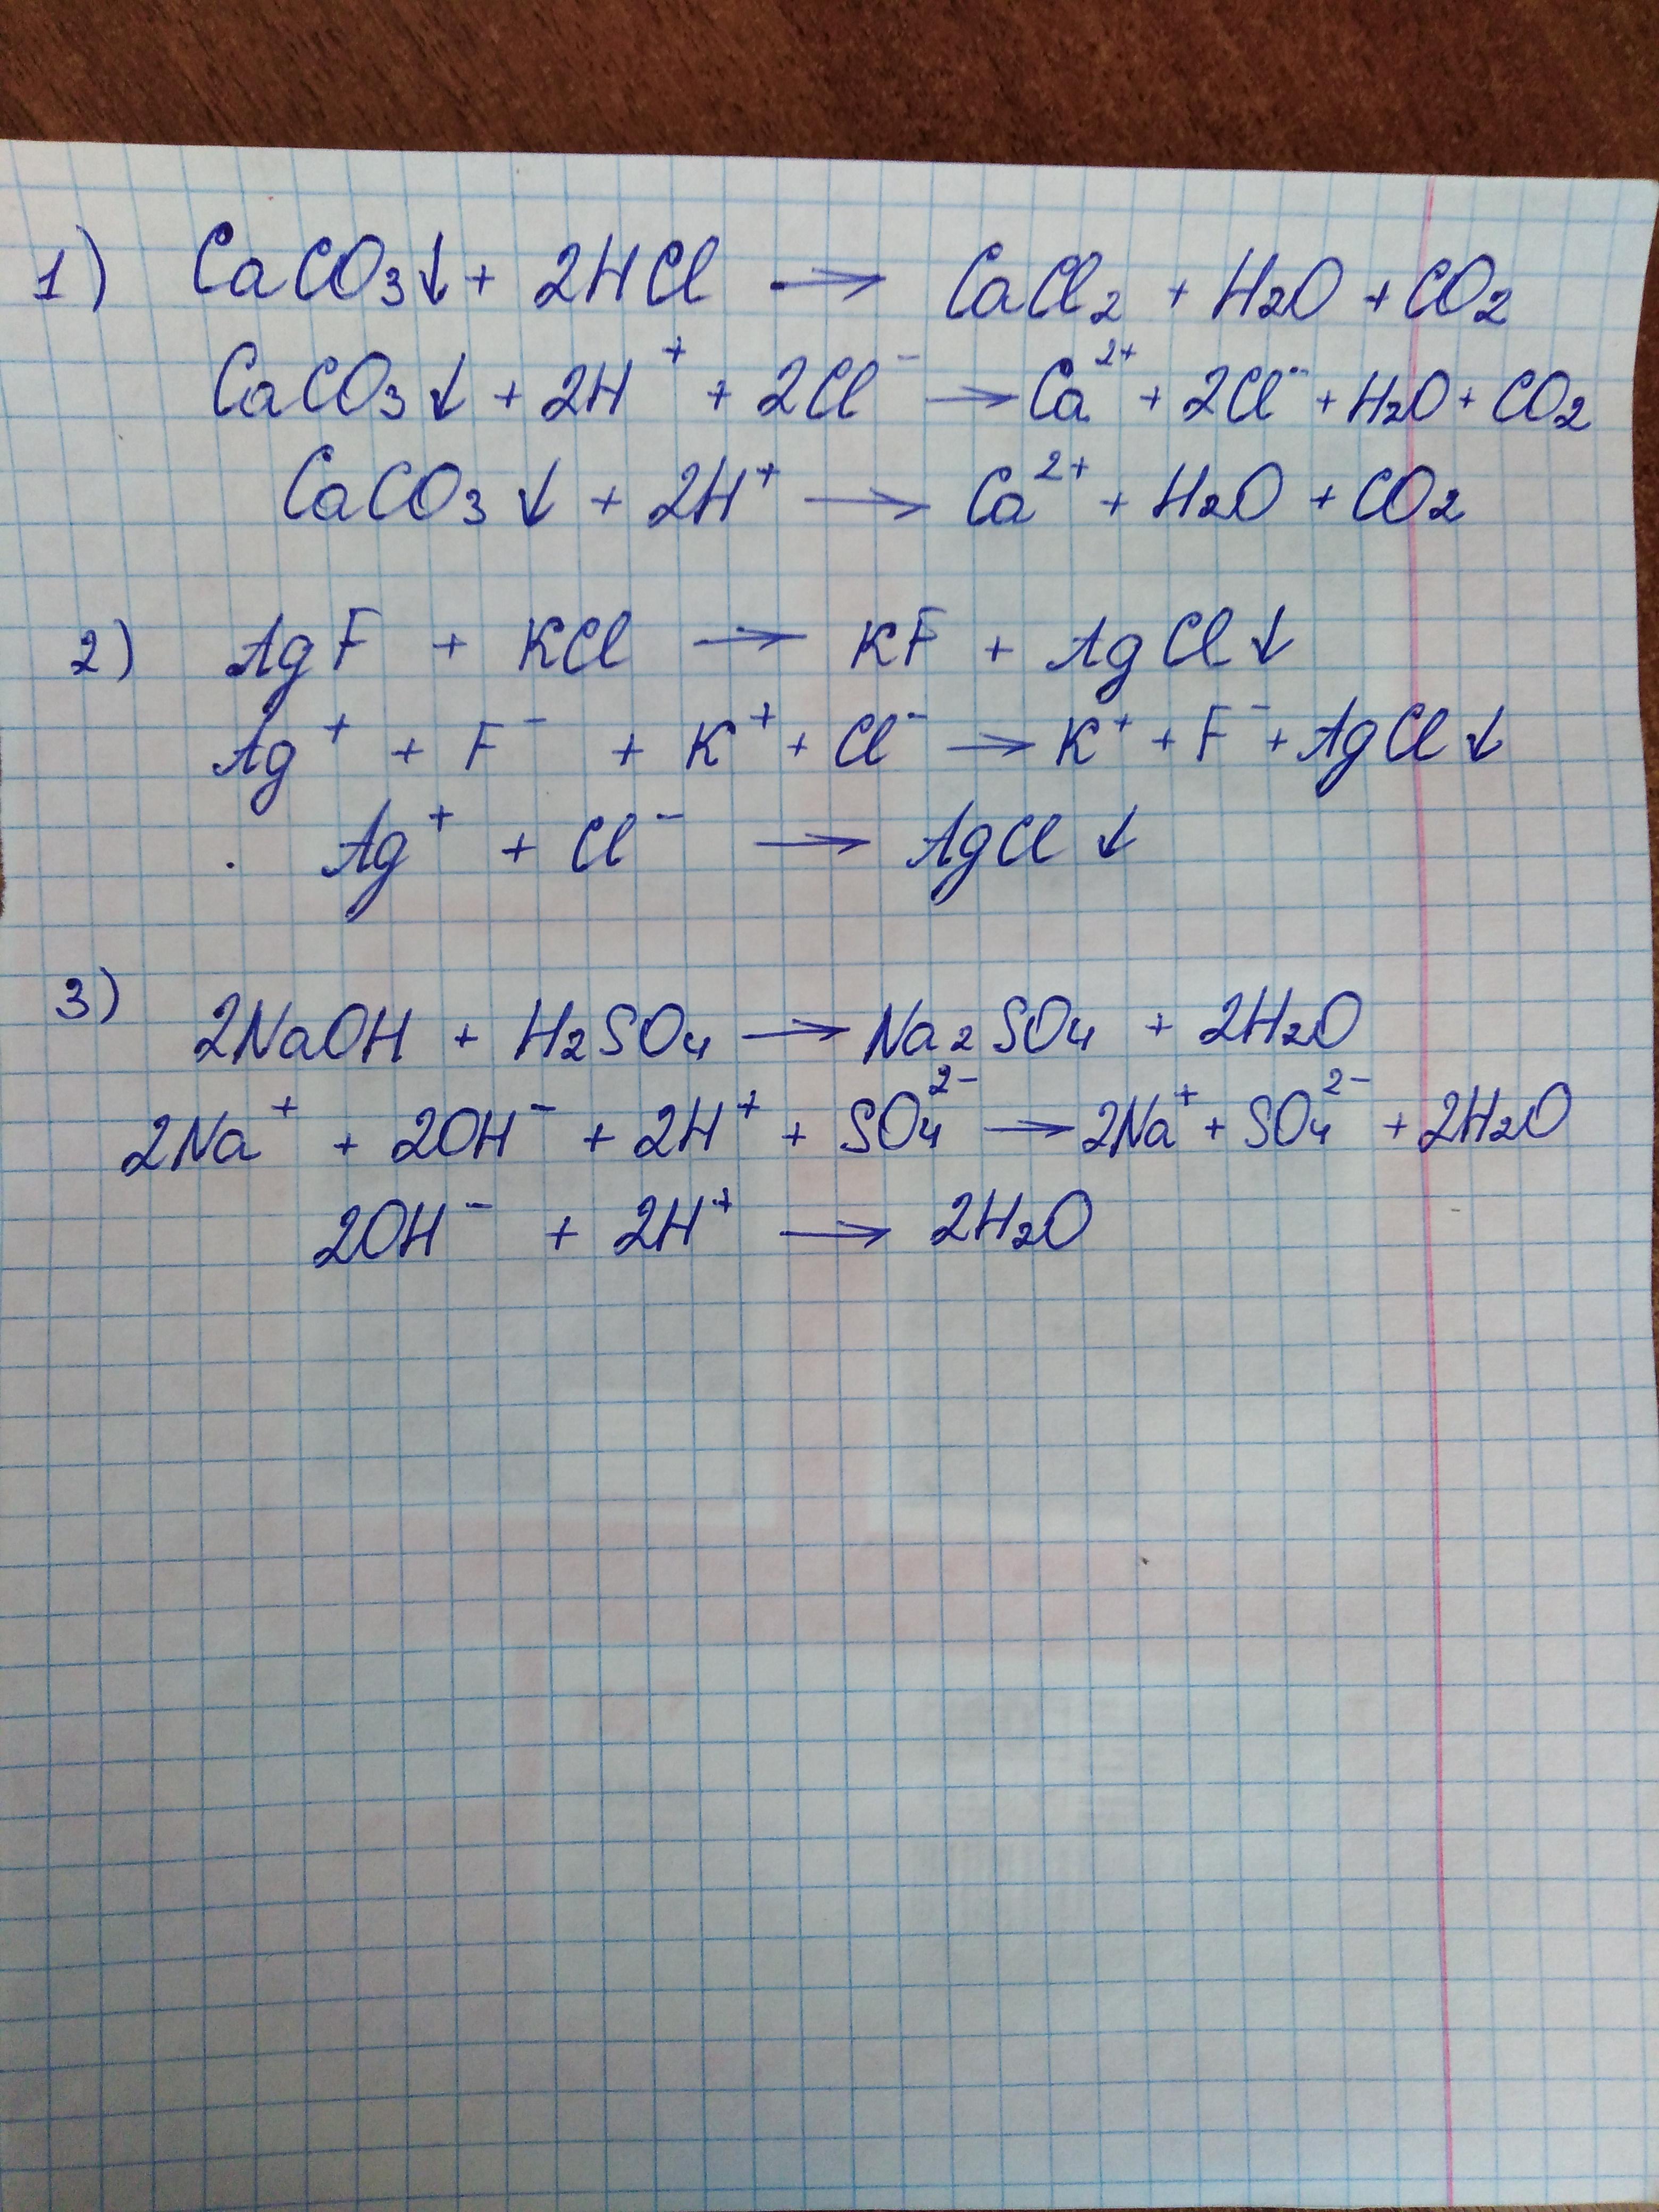 1) CaCO₃↓ + 2HCl → CaCl₂ + H₂O + CO₂
CaCO₃↓ + 2H⁺ + 2Cl⁻ → Ca²⁺ + 2Cl⁻ + H₂O + CO₂
CaCO₃↓ + 2H⁺ → Ca²⁺ + H₂O + CO₂
2) AgF + KCl → KF + AgCl↓
Ag⁺ + F⁻ + K⁺ + Cl⁻ → K⁺ + F⁻ + AgCl↓
Ag⁺ + Cl⁻ → AgCl↓
3) 2NaOH + H₂SO₄ → Na₂SO₄ + 2H₂O
2Na⁺ + 2OH⁻ + 2H⁺ + SO₄²⁻ → 2Na⁺ + SO₄²⁻ + 2H₂O
2OH⁻ + 2H⁺ → 2H₂O